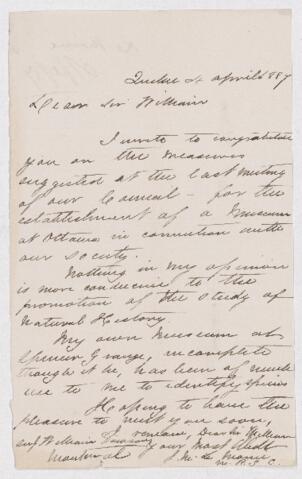 Quebec 4 April 1887
Dear Sir William
I write to congratulate
you on the measures
suggested at the last meeting
of our Council – for the
establishment of a Museum
at Ottawa in connection with
our society.
Nothing in my opinion
is more conducive to the
promotion of the study of
Natural History.
My own Museum at
Spencer Grange, incomplete
though it be, has been of much
use to me to identify species
Hoping to have the
pleasure to meet you soon,
I remain, Dear Sir William
Sir William Dawson your most obedt
Montreal J. M. Le Moine
M. R. S. C.